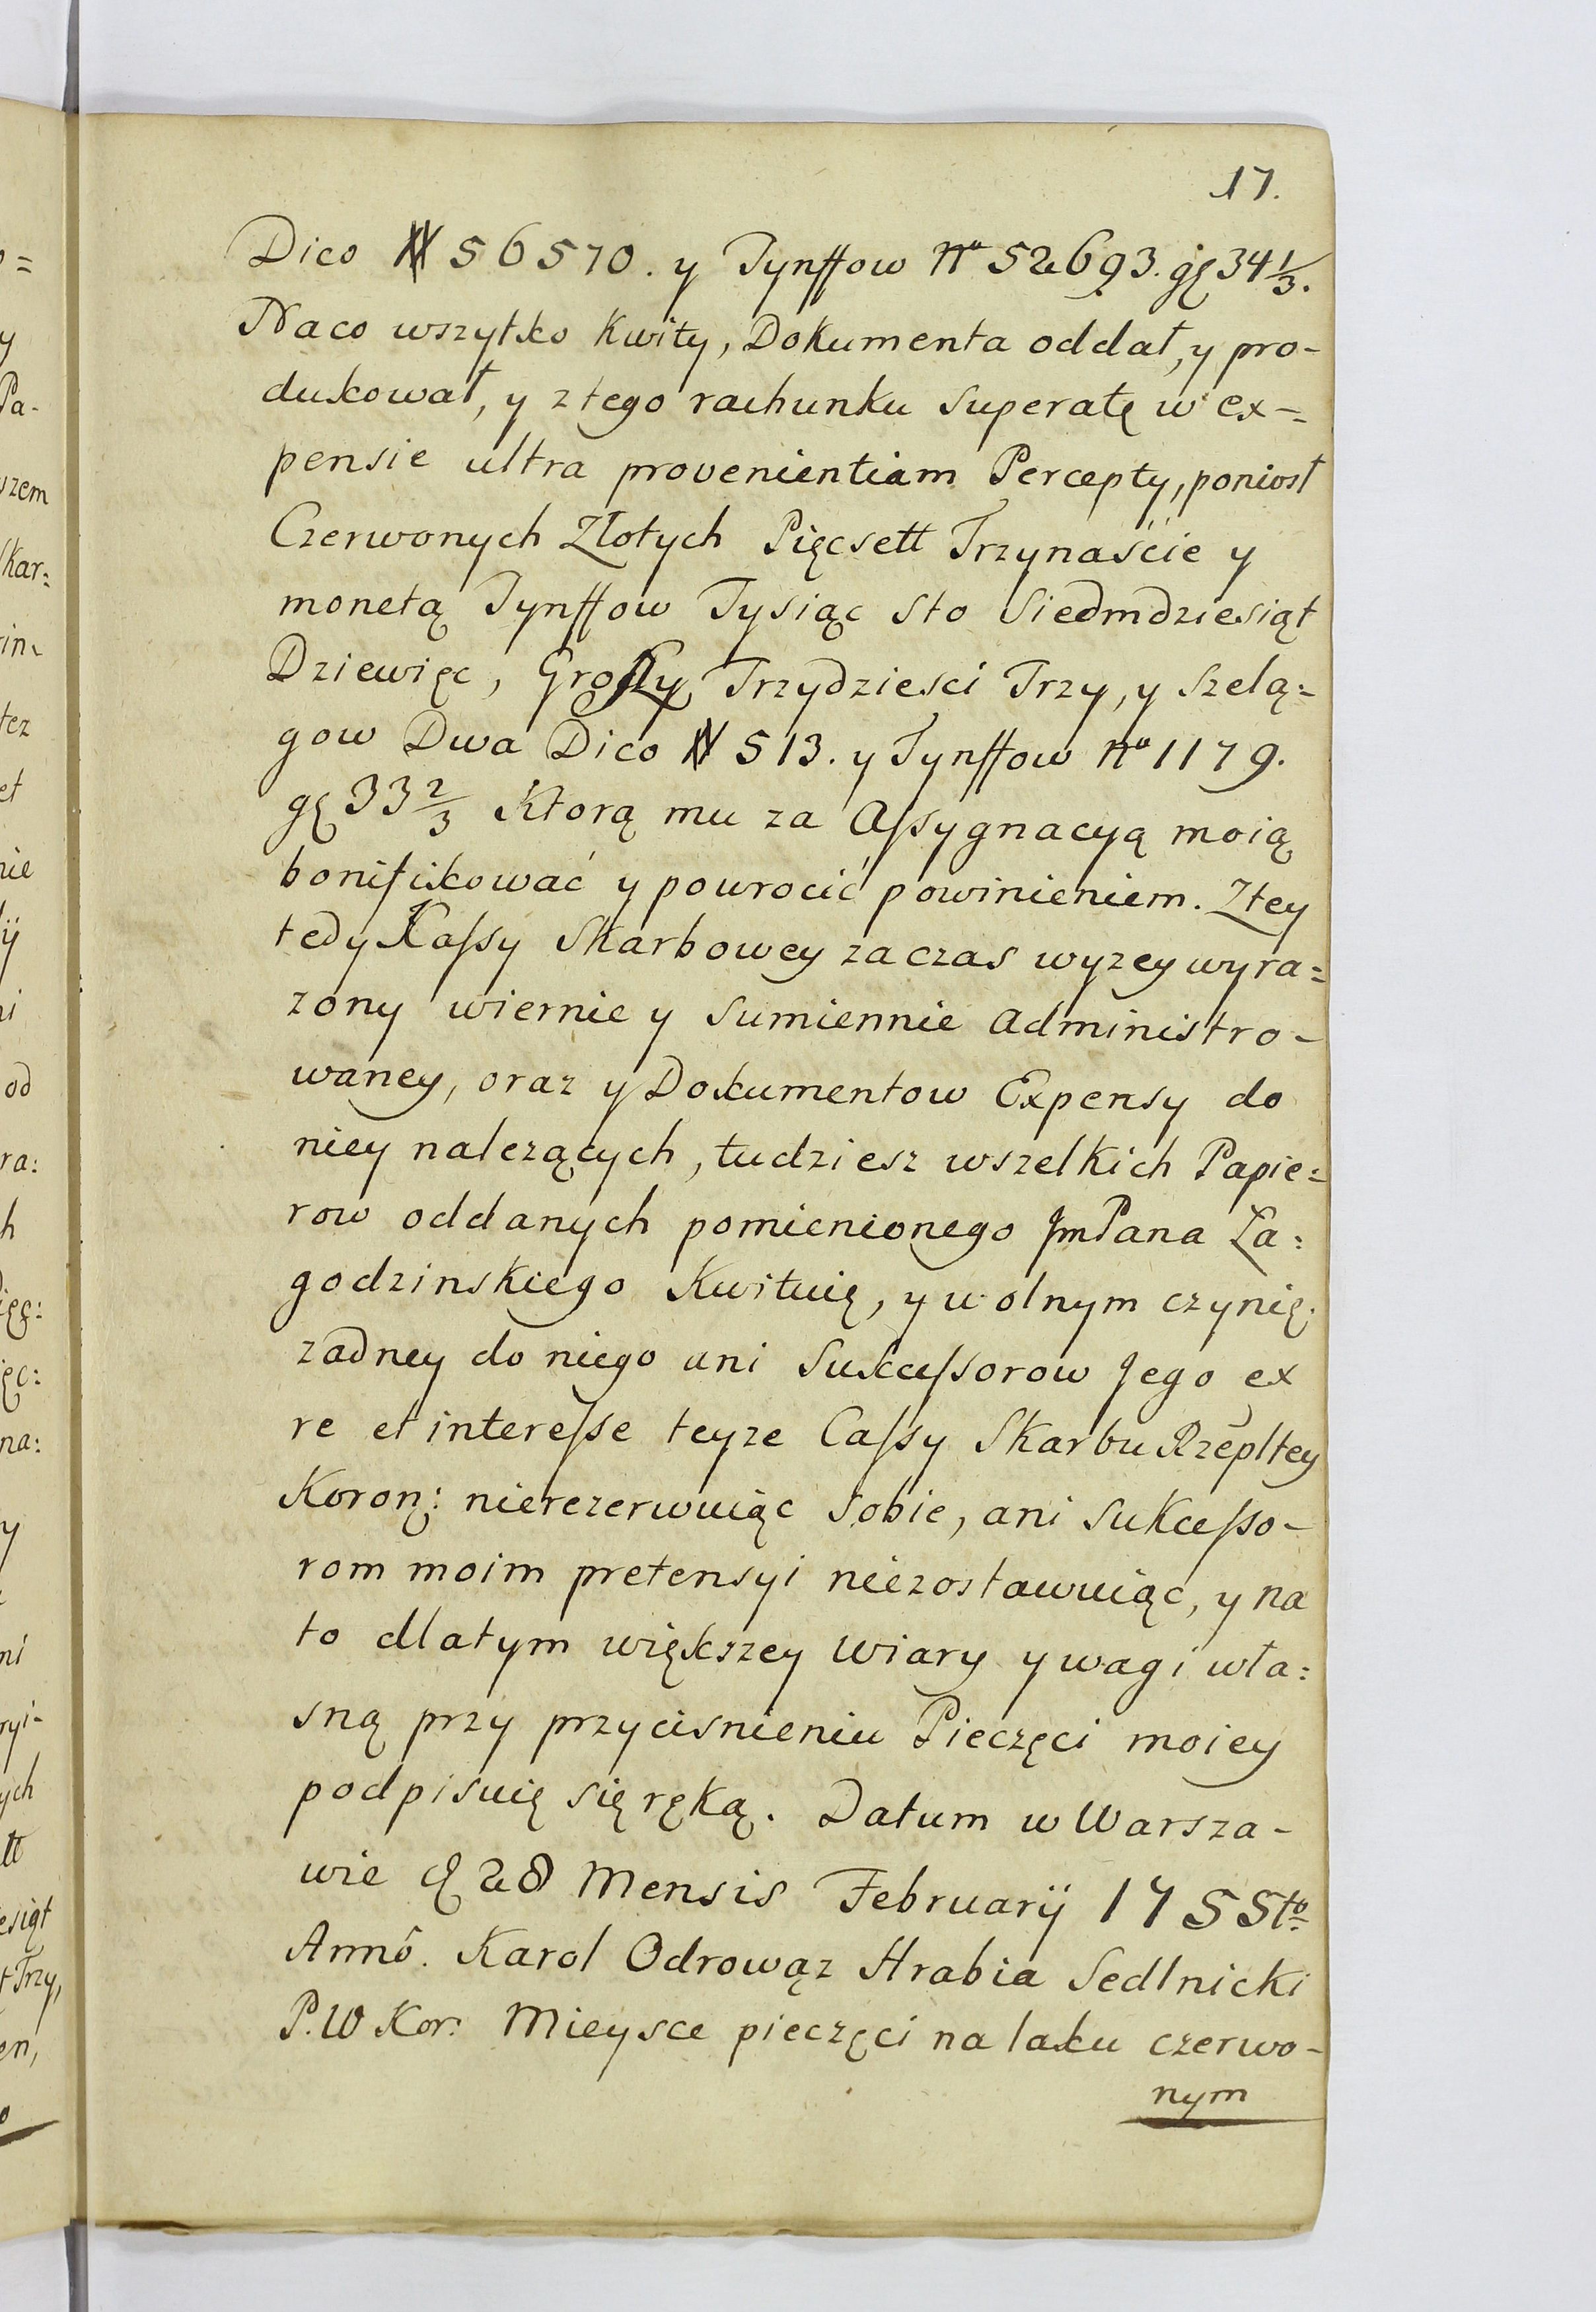 17.
Dico # 56570. y Tynffow No 52693. gſ 34 1/3.
Naco wszytko Kwity, Dokumenta oddał, y pro-
dukował, y ztego rachunku superatę w ex-=
pensie ultra provenientiam Percepty, poniosł
Czerwonych Złotych Pięcsett Trzynaście y
monetą Tynffow Tysiąc sto Siedmdziesiąt
Dziewięc, Groszy Trzydziesci Trzy, y Szelą=
gow Dwa Dico # 513. y Tynffow No 1179.
gſ 33 2/3 Ktorą mu za Aſsygnacyą moią
bonifikować y powrocić powinieniem. Ztey
tedy Kaſsy Skarbowey zaczas wyzey wyra=
zony wiernie y Sumiennie Administro-
waney, oraz y Dokumentow Expensy do
niey nalezących, tudziesz wszelkich Papie=
row oddanych pomienionego JmPana Za=
godzinskiego Kwituię, y wolnym czynię.
zadney do niego ani Sukceſsorow Jego ex
re et intereſse teyze Caſsy Skarbu Rzepltey
Koron: nierezerwuiąc Sobie, ani Sukceſso-
rom moim pretensyi niezostawuiąc, y na
to dlatym większey Wiary y wagi wła=
sną przy przycisnieniu Pieczęci moiey
podpisuię się ręką. Datum w Warsza-
wie d 28 Mensis Februarij 1755to
Annô. Karol Odrowąz Hrabia Sedlnicki
P. W Kor: Mieysce pieczęci na laku czerwo-
nym